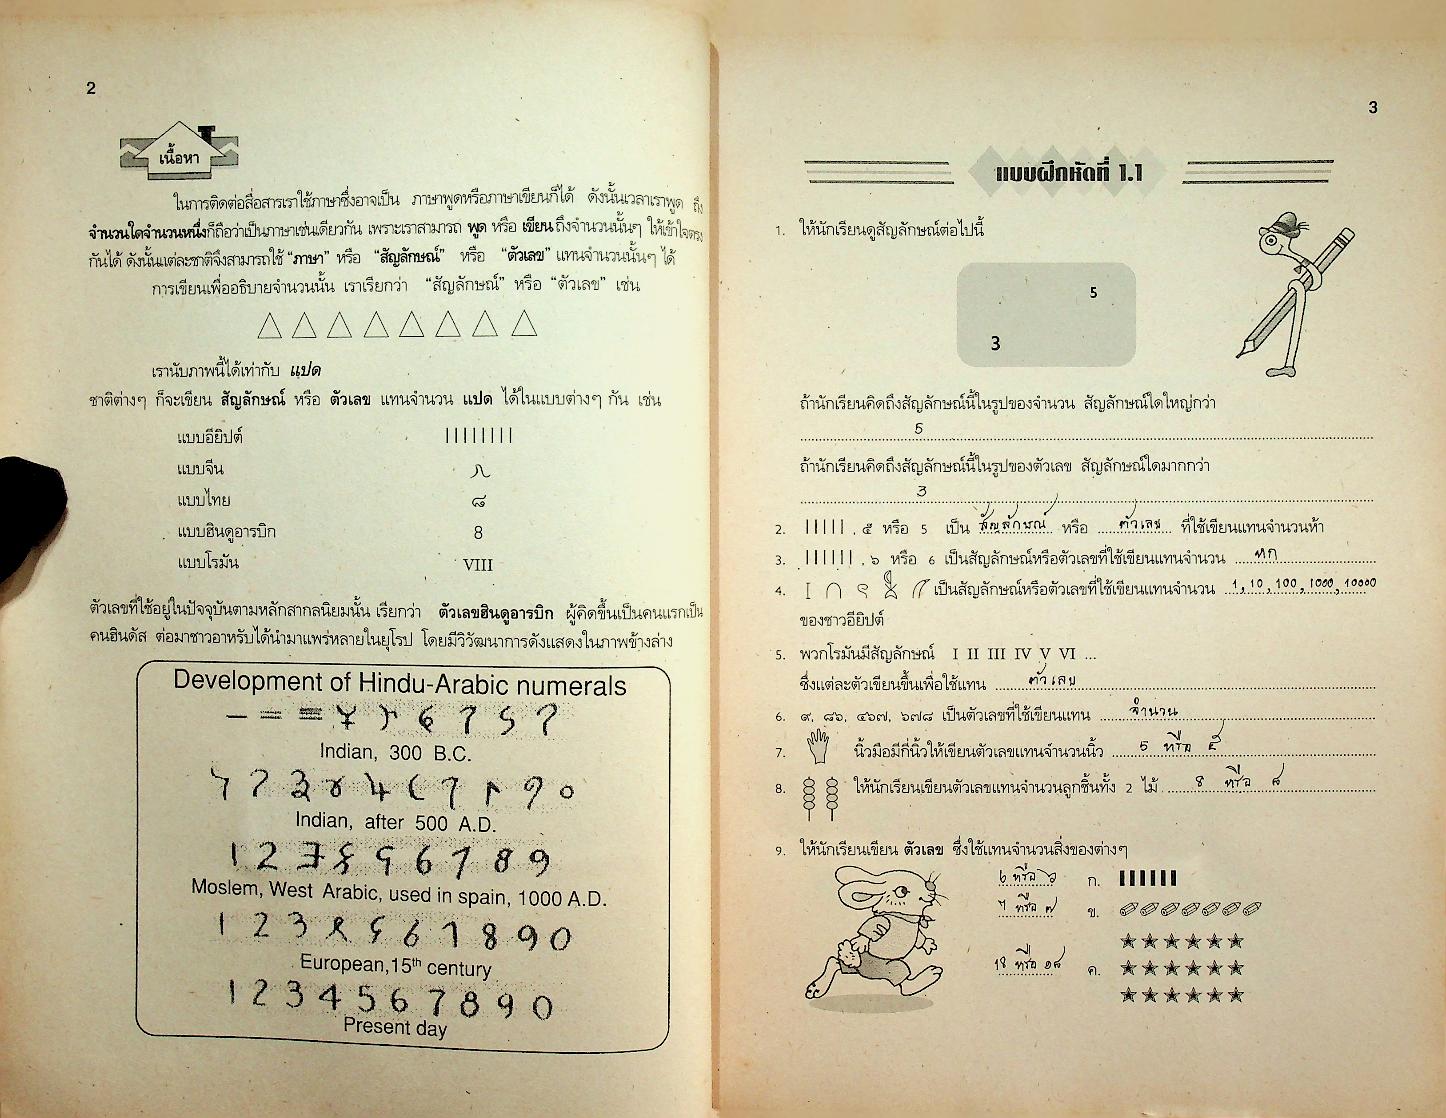 2
เนื้อหา
ในการติดต่อสื่อสารเราใช้ภาษาซึ่งอาจเป็น ภาษาพูดหรือภาษาเขียนก็ได้ ดังนั้นเวลาเราพูด ถึง
จำนวนใดจำนวนหนึ่งก็ถือว่าเป็นภาษาเช่นเดียวกัน เพราะเราสามารถ พูด หรือ เขียน ถึงจำนวนนั้นๆ ให้เข้าใจตรง
กันได้ ดังนั้นแต่ละชาติจึงสามารถใช้ "ภาษา" หรือ "สัญลักษณ์" หรือ "ตัวเลข" แทนจำนวนนั้นๆ ได้
การเขียนเพื่ออธิบายจำนวนนั้น เราเรียกว่า "สัญลักษณ์" หรือ "ตัวเลข" เช่น
เรานับภาพนี้ได้เท่ากับ แปด
ชาติต่างๆ ก็จะเขียน สัญลักษณ์ หรือ ตัวเลข แทนจำนวน แปด ได้ในแบบต่างๆ กัน เช่น
แบบอียิปต์ ||||||||
แบบจีน 八
แบบไทย ๘
แบบฮินดูอารบิก 8
แบบโรมัน VIII
ตัวเลขที่ใช้อยู่ในปัจจุบันตามหลักสากลนิยมนั้น เรียกว่า ตัวเลขฮินดูอารบิก ผู้คิดขึ้นเป็นคนแรกเป็น
คนฮินดัส ต่อมาชาวอาหรับได้นำมาแพร่หลายในยุโรป โดยมีวิวัฒนาการดังแสดงในภาพข้างล่าง
Development of Hindu-Arabic numerals
Indian, 300 B.C.
Indian, after 500 A.D.
Moslem, West Arabic, used in spain, 1000 A.D.
European,15th century
1 2 3 4 5 6 7 8 9 0
Present day
3
แบบฝึกหัดที่ 1.1
1. ให้นักเรียนดูสัญลักษณ์ต่อไปนี้
5
3
ถ้านักเรียนคิดถึงสัญลักษณ์นี้ในรูปของจำนวน สัญลักษณ์ใดใหญ่กว่า
5
ถ้านักเรียนคิดถึงสัญลักษณ์นี้ในรูปของตัวเลข สัญลักษณ์ใดมากกว่า
3
2. |||||, ๕ หรือ 5 เป็น สัญลักษณ์ หรือ ตัวเลข ที่ใช้เขียนแทนจำนวนห้า
3. ||||||, ๖ หรือ 6 เป็นสัญลักษณ์หรือตัวเลขที่ใช้เขียนแทนจำนวน หก
4. เป็นสัญลักษณ์หรือตัวเลขที่ใช้เขียนแทนจำนวน 1, 10, 100, 1000, 10000
ของชาวอียิปต์
5. พวกโรมันมีสัญลักษณ์ I II III IV V VI ...
ซึ่งแต่ละตัวเขียนขึ้นเพื่อใช้แทน ตัวเลข
6. ๙, ๘๖, ๔๖๗, ๖๗๘ เป็นตัวเลขที่ใช้เขียนแทน จำนวน
7. นิ้วมือมีกี่นิ้วให้เขียนตัวเลขแทนจำนวนนิ้ว 5 หรือ ๕
8. ให้นักเรียนเขียนตัวเลขแทนจำนวนลูกชิ้นทั้ง 2 ไม้ 8 หรือ ๘
9. ให้นักเรียนเขียน ตัวเลข ซึ่งใช้แทนจำนวนสิ่งของต่างๆ
6 หรือ ๖ ก.
7 หรือ ๗ ข.
18 หรือ ๑๘ ค.